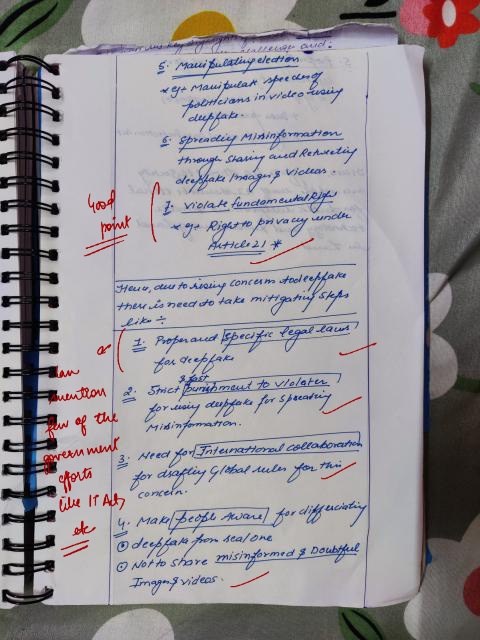 challenge and:
5. Manipulating election
* eg → Manipulate speeches of
politicians in video using
deepfake.
6. Spreading Misinformation
through Sharing and Retweeting
deepfake Images & Videos.
Good
point
7. Violate fundamental Right
* eg → Right to privacy under
Article 21 *
Hence, due to rising concern to deepfake
there is need to take mitigating steps
like ÷
1. Proper and specific legal laws
for deepfake
can
mention
few of the
government
efforts
like IT Act,
etc
2. Strict & fast punishment to violater
for using deepfake for spreading
Misinformation.
3. Need for International collaboration
for drafting Global rules for this
concern.
4. Make people Aware for differciating
deepfake from real one
Not to share misinformed & Doubtful
Images & videos.